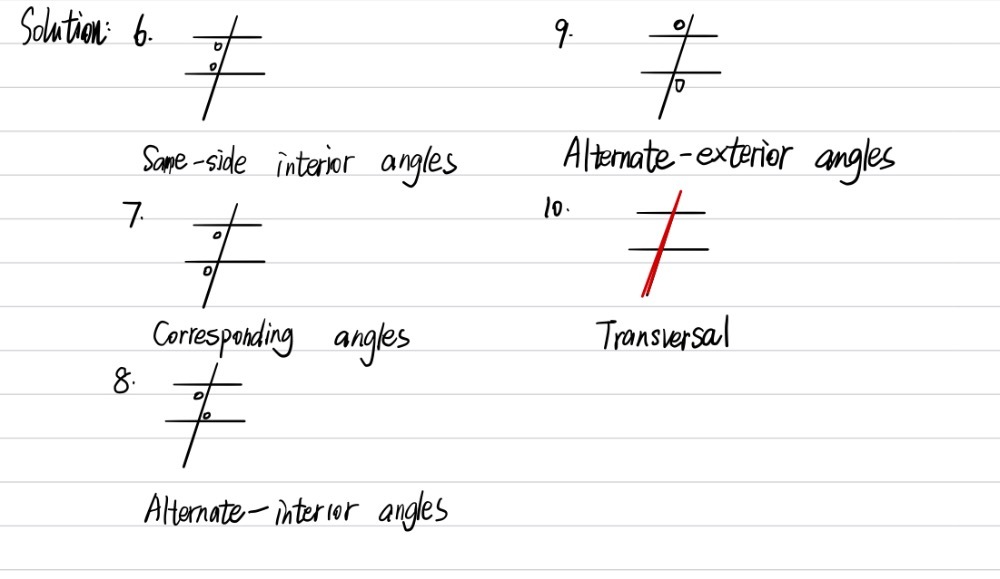 Solution: 6.
Same-side interior angles
7.
Corresponding angles
8.
Alternate-interior angles
9.
Alternate-exterior angles
10.
Transversal